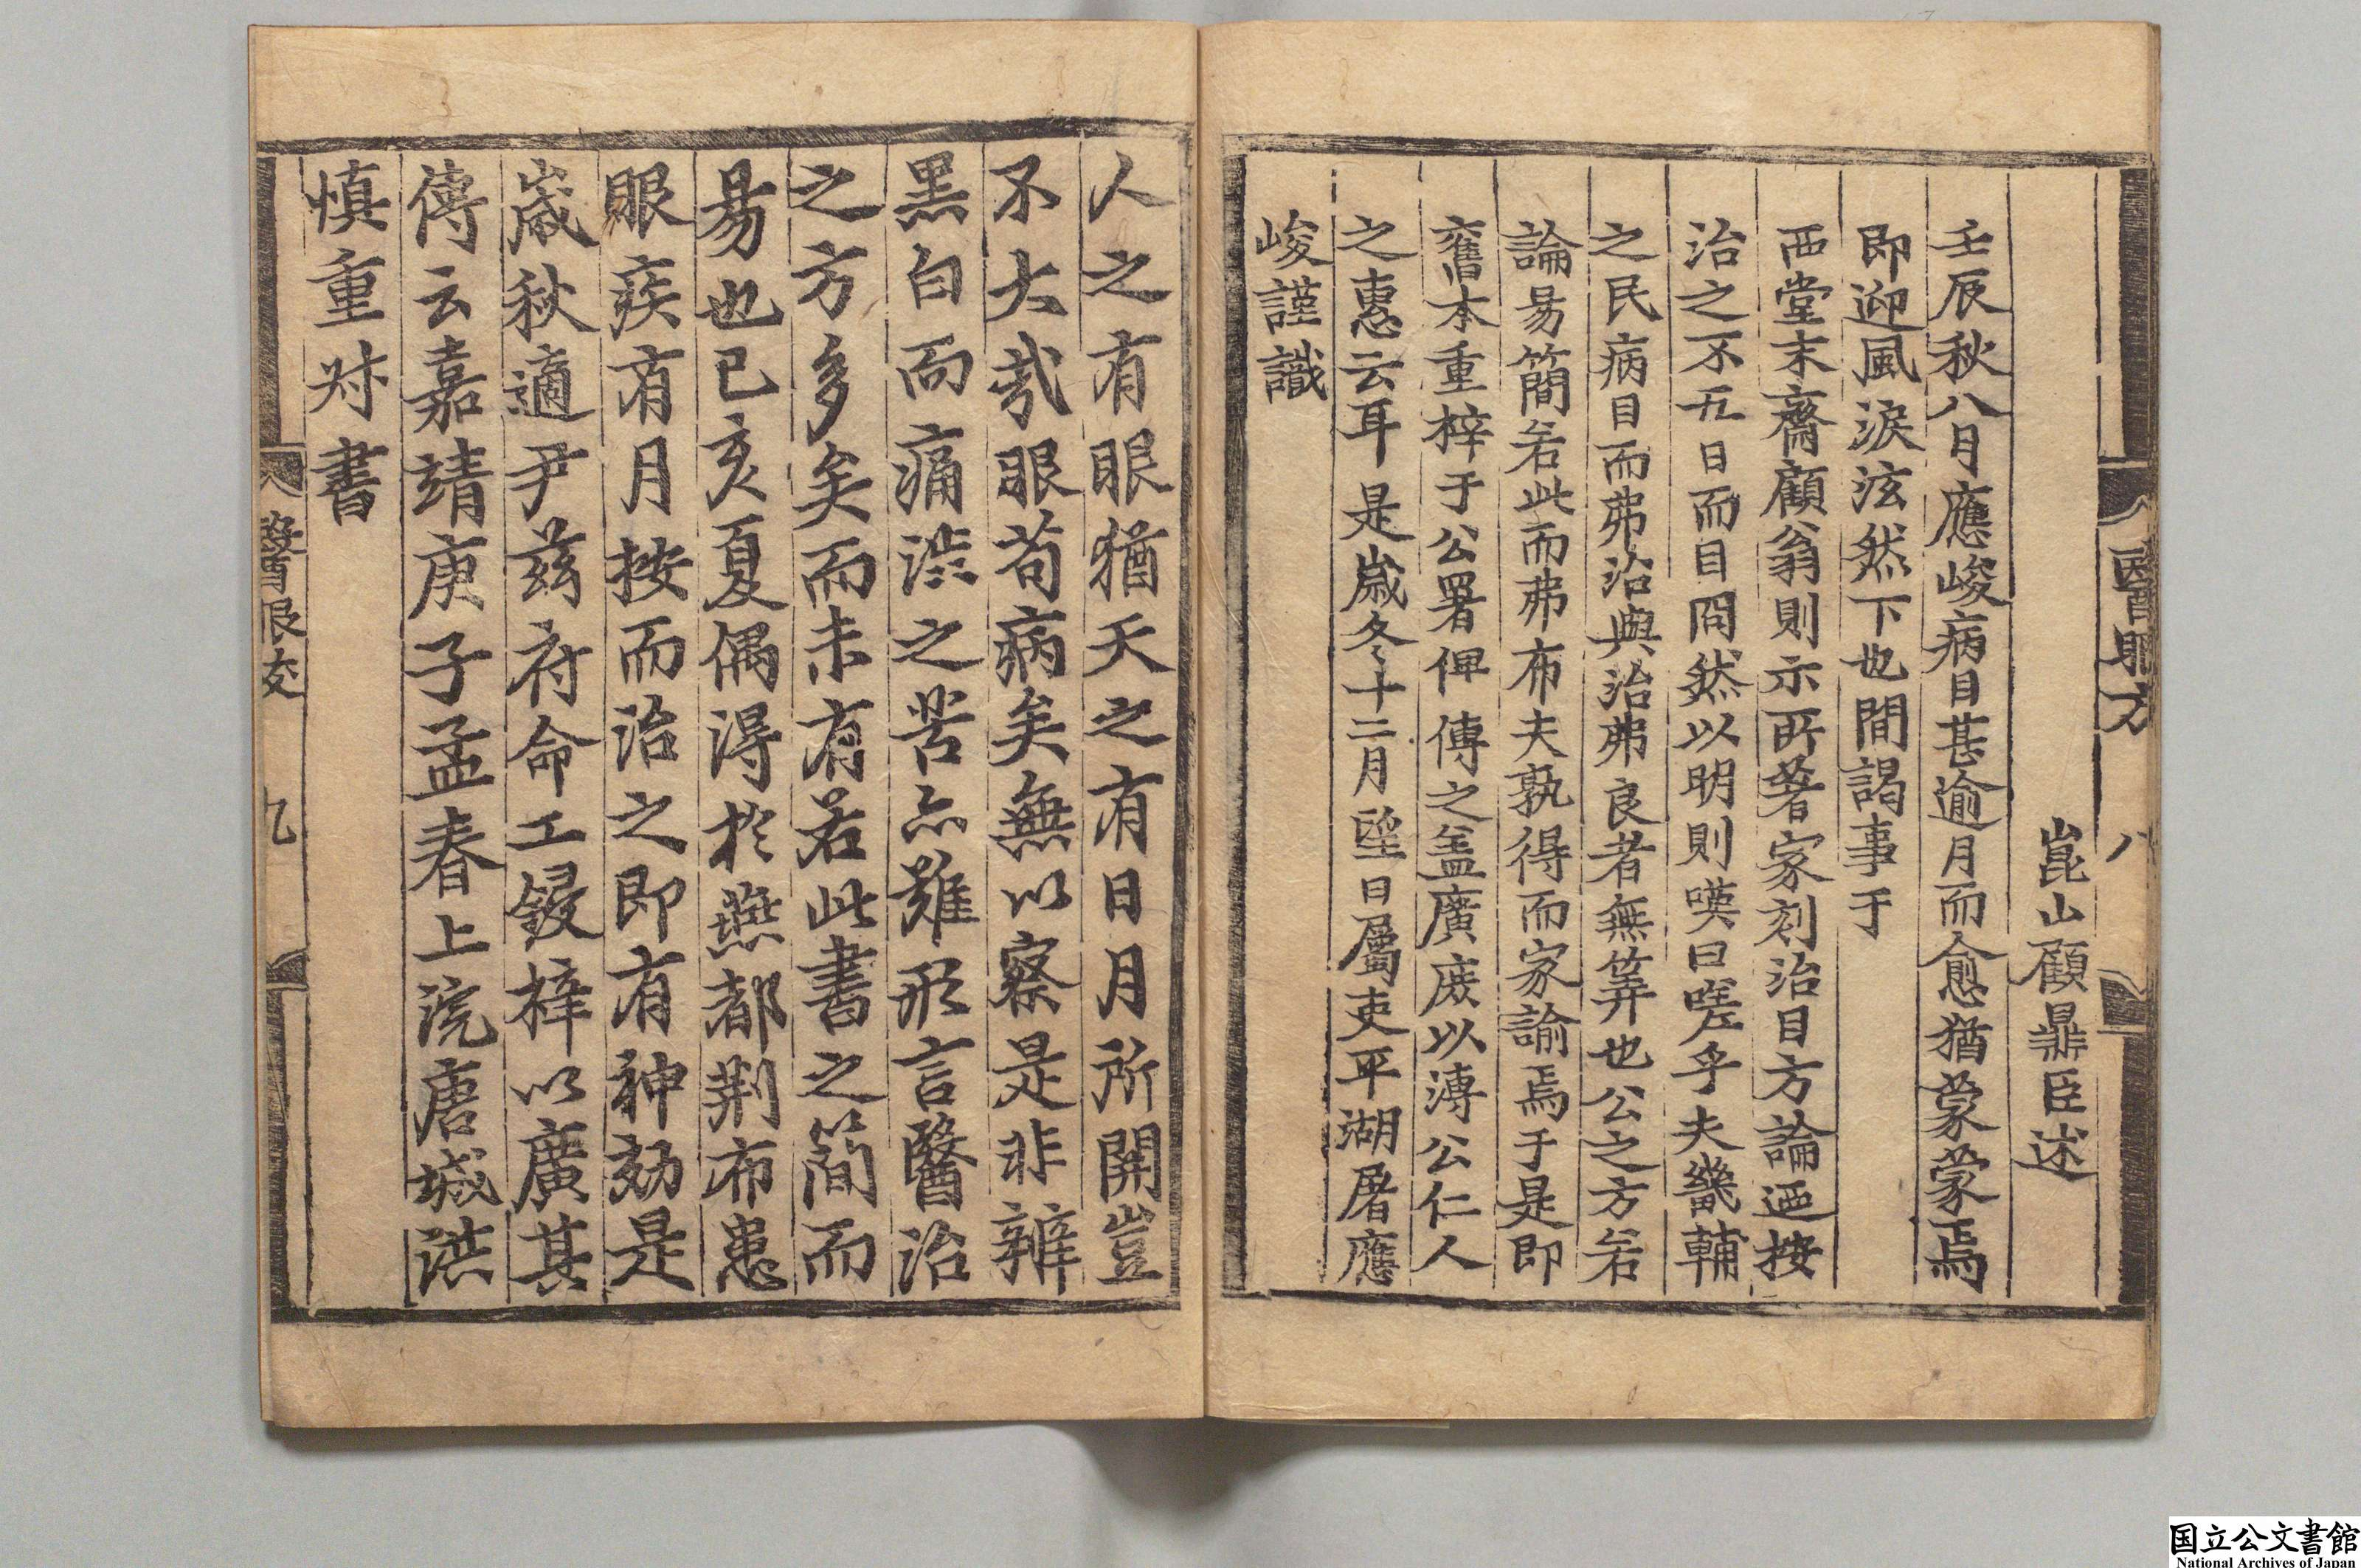 醫眼方 八
崑山顧鼎臣述
壬辰秋八月應峻病目甚逾月而愈猶蒙蒙焉
即迎風淚泫然下也間謁事于
西堂末齋顧翁則示所著家刻治目方論迺按
治之不五日而目冏然以明則嘆曰嗟乎夫畿輔
之民病目而弗治與治弗良者無筭也公之方若
論易簡若此而弗布夫孰得而家諭焉于是即
舊本重梓于公署俾傳之盖廣庻以溥公仁人
之惠云耳是歲冬十二月朢日屬吏平湖屠應
峻謹識
人之有眼猶天之有日月所關豈
不大哉眼苟病矣無以察是非辨
黑白而痛澁之苦亦難形言醫治
之方多矣而未有若此書之簡而
易也己亥夏偶得於燕都荆布患
眼疾有月按而治之即有神効是
歲秋適尹茲府命工鋟梓以廣其
傳云嘉靖庚子孟春上浣唐城洪
慎重对書
醫眼方 九
国立公文書館
National Archives of Japan